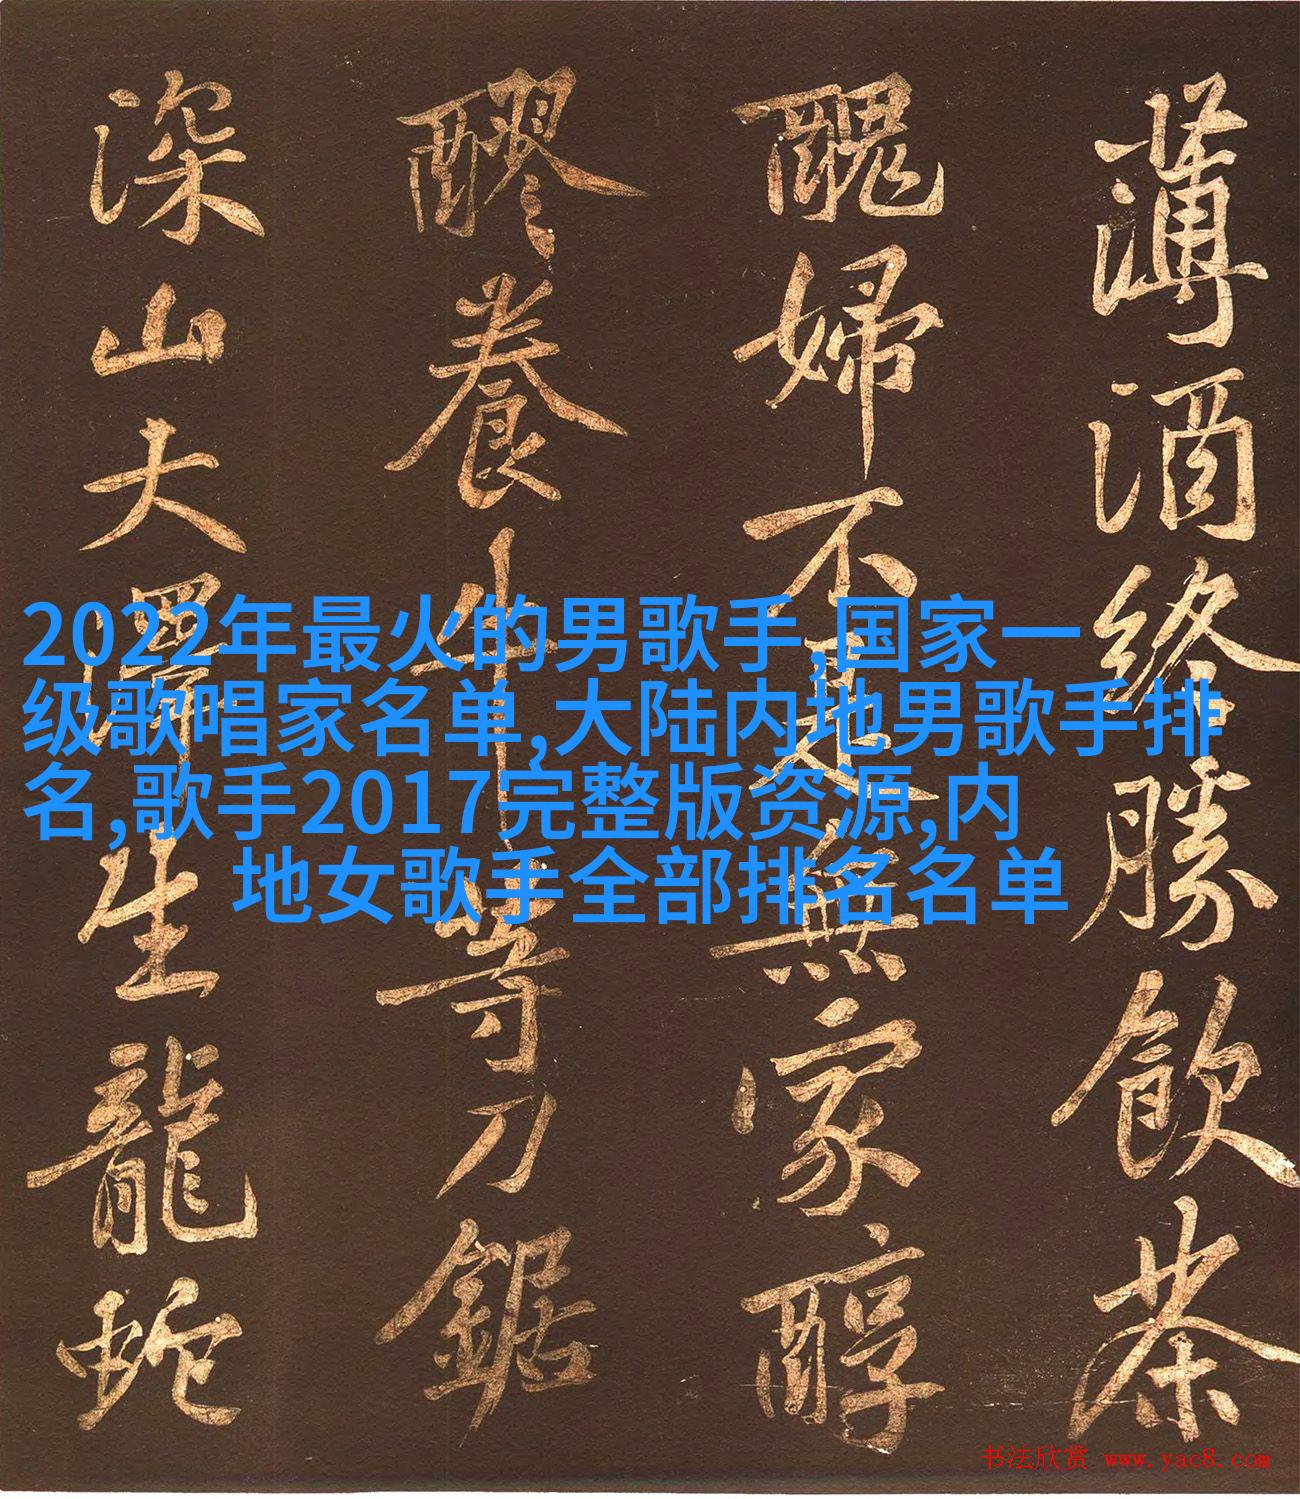 薄酒終勝飲茶
醜婦不是無家醇
醪養牛等刀鋸
深山大澤生龍蛇
2022年最火的男歌手,国家一
级歌唱家名单,大陆内地男歌手排
名,歌手2017完整版资源,内
地女歌手全部排名名单
书法欣赏 www.yac8.com